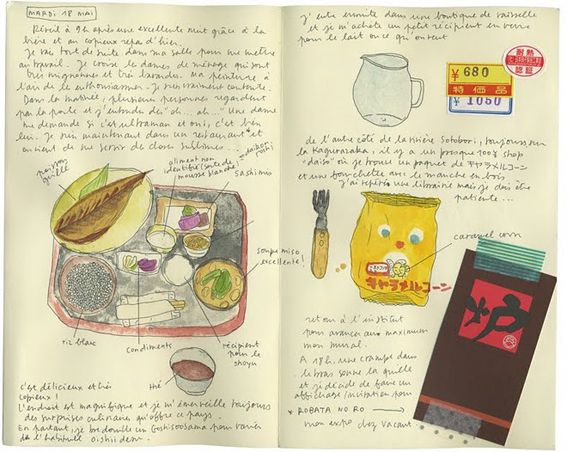 MARDI 18 MAI
Réveil à 9h après une excellente nuit grâce à la
bière et au copieux repas d'hier.
Je vais tout de suite dans ma salle pour me mettre
au travail. Je croise les dames de ménage qui sont
très mignonnes et très bavardes. Ma peinture a
l'air de les enthousiasmer. Je suis vraiment contente.
Dans la matinée, plusieurs personnes regardent
par la porte et j'entends des "oh... ah..." Une dame
me demande si c'est ultraman et oui, c'est bien
lui. Je suis maintenant dans un restaurant * et on
vient de me servir de choses sublimes...
poisson
grillé
aliment non
identifié (sorte de
mousse blanche)
daikon
rosti
sashimis
soupe miso
excellente!
riz blanc
condiments
récipient
pour le
shoyu
thé
c'est délicieux et très
copieux!
L'endroit est magnifique et je m'émerveille toujours
des surprises culinaires qu'offre ce pays.
En partant, je bredouille un Gochisoosama pour varier
de l'habituel oishii desu.
J'entre ensuite dans une boutique de vaisselle
et je m'achète un petit récipient en verre
pour le lait
耐熱
認証
¥ 680
特価品
¥ 1050
de l'autre côté de la rivière Sotobori, toujours sur
la Kagurazaka, il y a un presque 100¥ shop
"daiso" où je trouve un paquet de キャラメルコーン
et une fourchette avec le manche en bois
J'ai repéré une librairie mais je dois être
patiente...
caramel corn
キャラメルコーン
炉
retour à l'institut
pour avancer au maximum
mon mural.
A 18h. une crampe dans
le bras sonne la quille
et je décide de faire un
affichage/invitation pour
* ROBATA NO RO →
mon expo chez Vacant